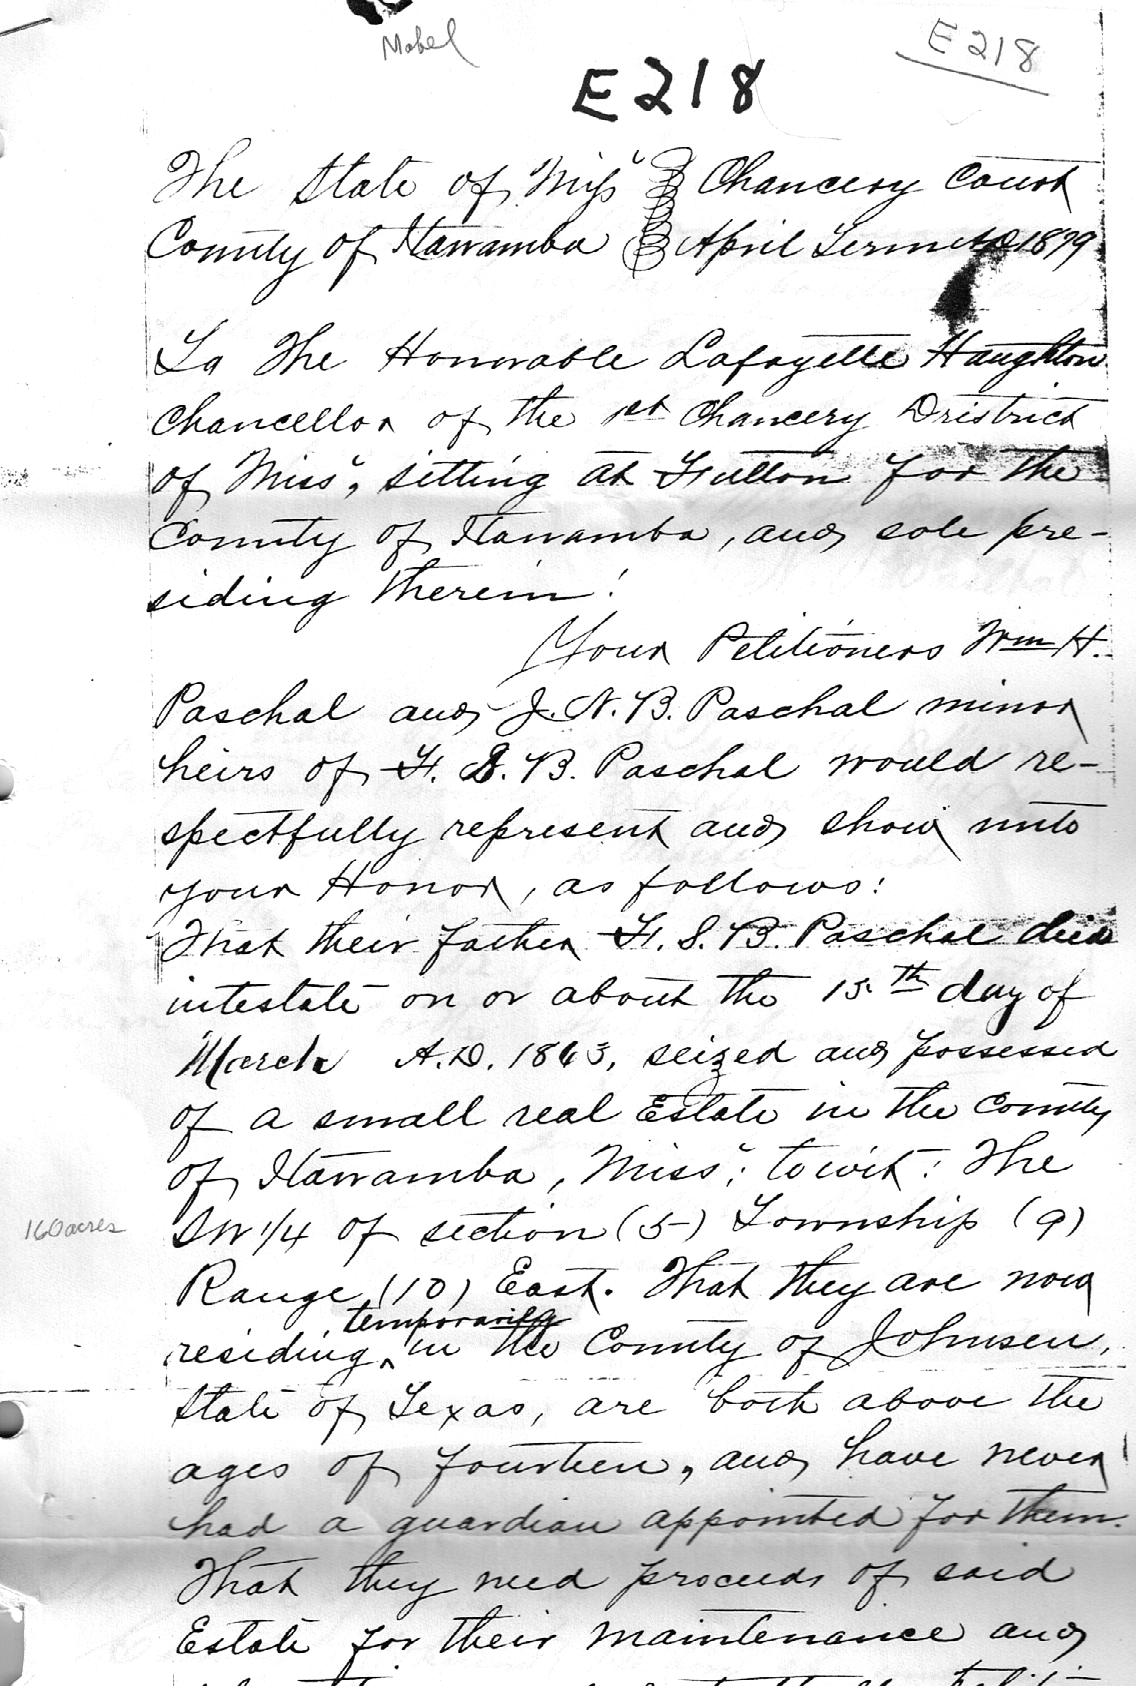 Mabel
E 218
E 218
The State of Miss Chancery Court
County of Itawamba April Term AD 1879
To The Honorable Lafayette Haughton
Chancellor of the 1st Chancery District
of Miss, sitting at Fulton for the
County of Itawamba, and sole pre-
siding therein!
Your Petitioners Wm H.
Paschal and J. N. B. Paschal minor
heirs of F. S. B. Paschal would re-
spectfully represent and show unto
your Honor, as follows:
That their father F. S. B. Paschal died
intestate on or about the 15th day of
March A.D. 1863, seized and possessed
of a small real Estate in the County
of Itawamba, Miss; towit: The
SW 1/4 of section (5) Township (9)
160 acres
Range (10) East. That they are now
temporarily
residing in the County of Johnson,
State of Texas, are both above the
ages of fourteen, and have never
had a guardian appointed for them.
That they need proceeds of said
Estate for their maintenance and